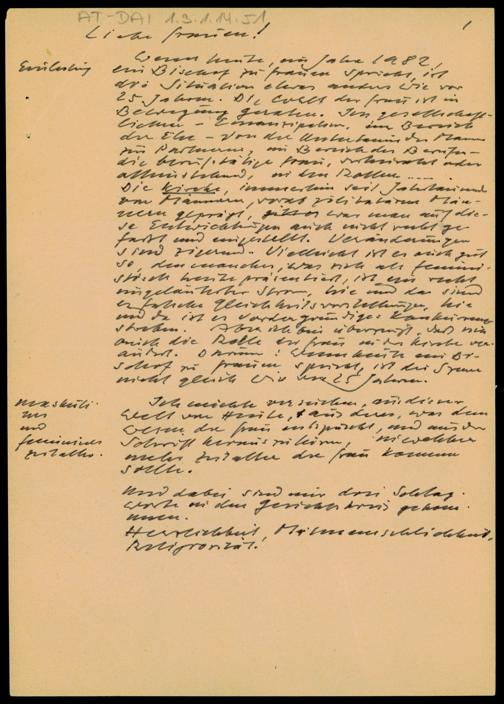 AT-DAI 1.3.1.14.51
1
Liebe Frauen!
Einleitung
Wenn heute, im Jahre 1982,
ein Bischof zu Frauen spricht, ist
die Situation etwas anders wie vor
25 Jahren. Die Welt der Frau ist in
Bewegung geraten. Im gesellschaft-
lichen - Emanzipation. Im Bereich
der Ehe - von der
zur Partnerin, im Bereich des Berufes
die berufstätige Frau, verheiratet oder
alleinstehend, in den Rollen .....
Die Kirche, immerhin seit Jahrtausenden
von Männern, sogar zölibatären Män-
nern geprägt, was man auf die-
se Entwicklungen auch nicht recht ge-
faßt und eingestellt. Veränderungen
sind zögernd. Vielleicht ist es auch gut
so, denn manches, was sich als femini-
stisch heute präsentiert, ist ein recht
ungeläuterter Strom, hie und da sind
es falsche Gleichheitsvorstellungen, hie
und da ist es vordergründiges Konkurrenz-
streben. Aber ich bin überzeugt, daß sich
auch die Rolle der Frau in der Kirche ver-
ändert. Darum: Wenn heute ein Bi-
schof zu Frauen spricht, ist die Szene
nicht gleich wie vor 25 Jahren.
Maskuli-
nes
und
feminines
Zeitalter.
Ich möchte versuchen, aus dieser
Welt von Heute, aus dem, was dem
Wesen der Frau entspricht, und aus der
Schrift herauszuhören, in welcher
mehr Zeitalter der Frau kommen
sollte.
Und dabei sind mir drei Schlag-
worte in den Gesichtskreis gekom-
men.
Herzlichkeit, Mitmenschlichkeit,
Religiosität.